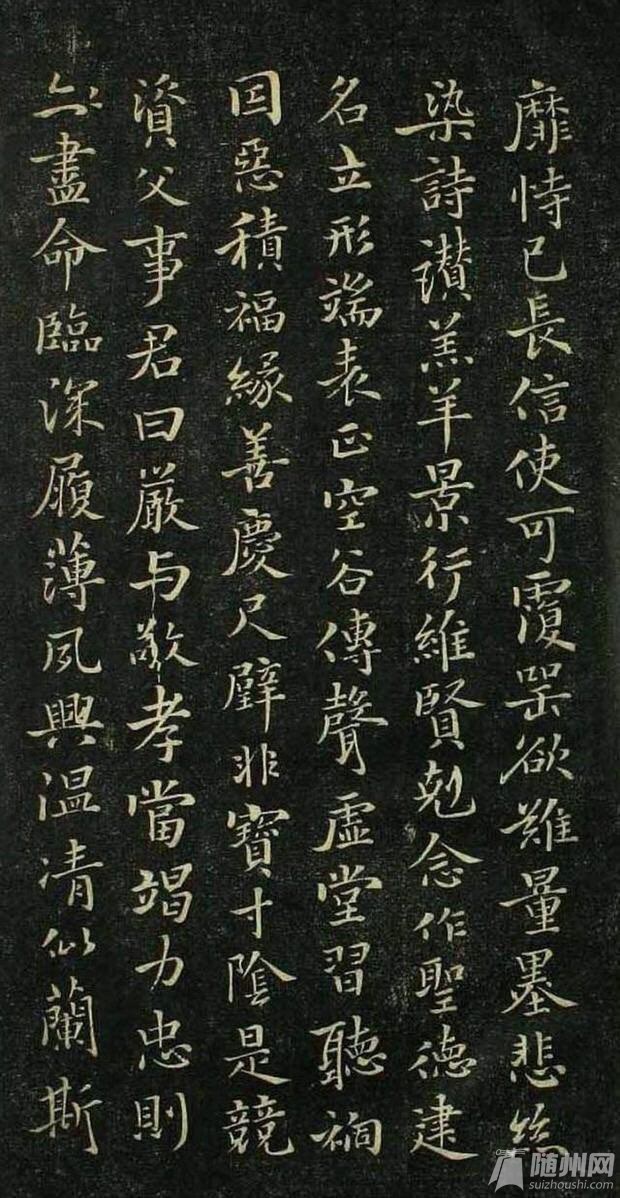 靡恃己長信使可覆器欲難量墨悲絲
染詩讃羔羊景行維賢剋念作聖德建
名立形端表正空谷傳聲虛堂習聽禍
因惡積福緣善慶尺璧非寶寸陰是競
資父事君曰嚴与敬孝當竭力忠則
盡命臨深履薄夙興温凊似蘭斯
随州网
suizhoushi.com